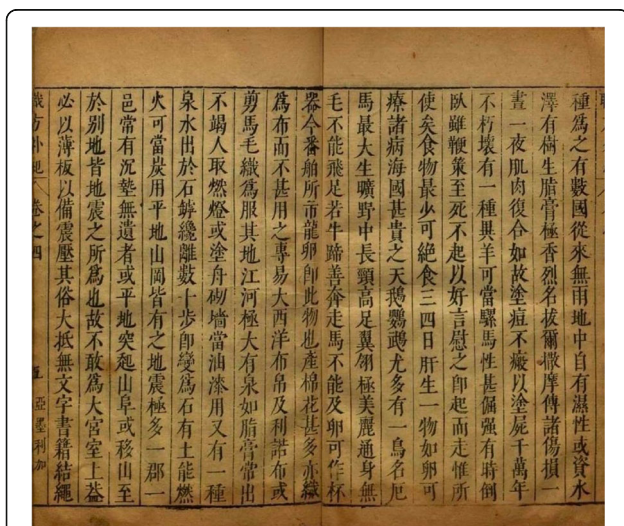 種爲之有數國從來無雨地中自有濕性或資水
澤有樹生脂膏極香烈名拔爾撒摩傳諸傷損一
晝一夜肌肉復合如故塗痘不瘢以塗屍千萬年
不朽壞有一種異羊可當騾馬性甚倔强有時倒
臥雖鞭策至死不起以好言慰之卽起而走惟所
使矣食物最少可絶食三四日肝生一物如卵可
療諸病海國甚貴之天鵝鸚鵡尤多有一鳥名厄
馬最大生曠野中長頸高足翼翎極美麗通身無
毛不能飛足若牛蹄善奔走馬不能及卵可作杯
器今番舶所市龍卵卽此物也產棉花甚多亦織
爲布而不甚用之專易大西洋布帛及利諾布或
剪馬毛織爲服其地江河極大有泉如脂膏常出
不竭人取燃燈或塗舟砌墻當油漆用又有一種
泉水出於石罅纔離數十步卽變爲石有土能燃
火可當炭用平地山岡皆有之地震極多一郡一
邑常有沉墊無遺者或平地突起山阜或移山至
於別地皆地震之所爲也故不敢爲大宮室上蓋
必以薄板以備震壓其俗大抵無文字書籍結繩
職方外紀 卷之四 亞墨利加